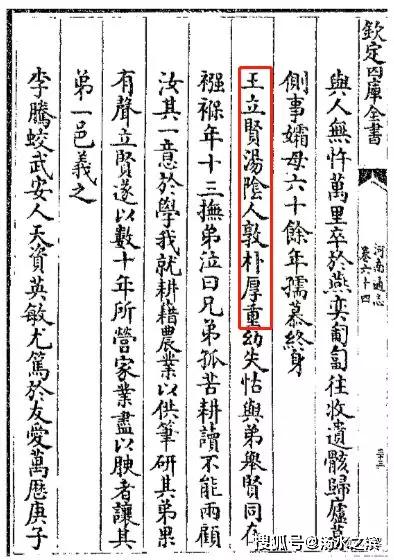 欽定四庫全書
河南通志
卷六十四
與人無忤萬里卒於燕奕匍匐往收遺骸歸廬墓
側事孀母六十餘年孺慕終身
王立賢湯陰人敦朴厚重幼失怙與弟舉賢同在
襁褓年十三撫弟泣曰兄弟孤苦耕讀不能兩顧
汝其一意於學我就耕籍農業以供筆研其弟果
有聲立賢遂以數十年所營家業盡以腴者讓其
弟一邑義之
李騰蛟武安人天資英敏尤篤於友愛萬歷庚子
搜狐号@汤水之滨